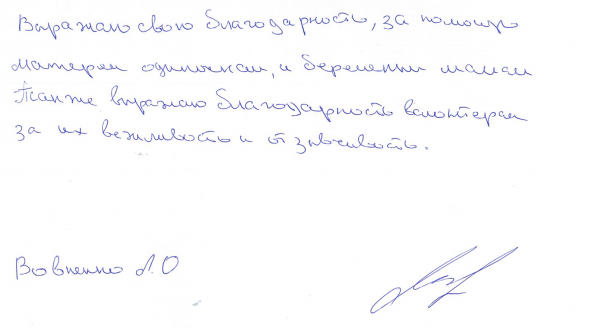 Выражаю свою благодарность, за помощь
матерям одиночкам, и беременым мамам
Также выражаю благодарность волонтерам
за их вежливость и отзывчивость.
Вовненко Л.О